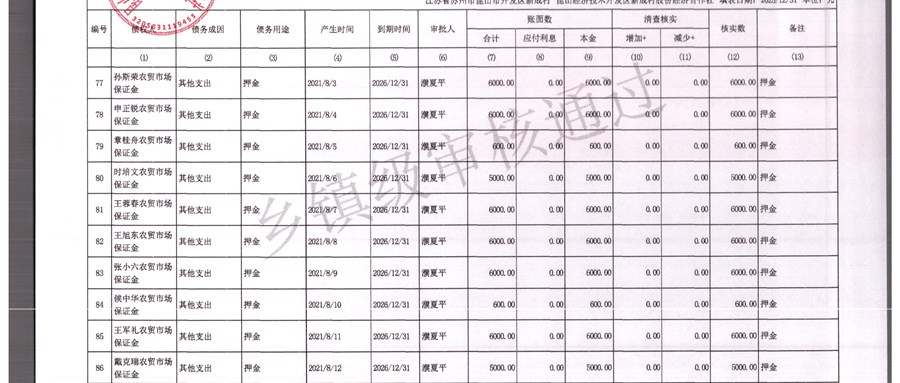 江苏省苏州市昆山市开发区新成村 昆山经济技术开发区新成村股份经济合作社 填表日期：2020/12/31 单位：元
3205831119455
编号 债权人 债务成因 债务用途 产生时间 到期时间 审批人 账面数 清查核实 核实数 备注
合计 应付利息 本金 增加+ 减少+
(1) (2) (3) (4) (5) (6) (7) (8) (9) (10) (11) (12) (13)
77 孙斯荣农贸市场保证金 其他支出 押金 2021/8/3 2026/12/31 濮夏平 6000.00 0.00 6000.00 0.00 0.00 6000.00 押金
78 申正锐农贸市场保证金 其他支出 押金 2021/8/4 2026/12/31 濮夏平 6000.00 0.00 6000.00 0.00 0.00 6000.00 押金
79 章桂舟农贸市场保证金 其他支出 押金 2021/8/5 2026/12/31 濮夏平 600.00 0.00 600.00 0.00 0.00 600.00 押金
80 时培文农贸市场保证金 其他支出 押金 2021/8/6 2026/12/31 濮夏平 5000.00 0.00 5000.00 0.00 0.00 5000.00 押金
81 王蓉春农贸市场保证金 其他支出 押金 2021/8/7 2026/12/31 濮夏平 6000.00 0.00 6000.00 0.00 0.00 6000.00 押金
82 王旭东农贸市场保证金 其他支出 押金 2021/8/8 2026/12/31 濮夏平 6000.00 0.00 6000.00 0.00 0.00 6000.00 押金
83 张小六农贸市场保证金 其他支出 押金 2021/8/9 2026/12/31 濮夏平 6000.00 0.00 6000.00 0.00 0.00 6000.00 押金
84 侯中华农贸市场保证金 其他支出 押金 2021/8/10 2026/12/31 濮夏平 600.00 0.00 600.00 0.00 0.00 600.00 押金
85 王军礼农贸市场保证金 其他支出 押金 2021/8/11 2026/12/31 濮夏平 6000.00 0.00 6000.00 0.00 0.00 6000.00 押金
86 戴克瑞农贸市场保证金 其他支出 押金 2021/8/12 2026/12/31 濮夏平 5000.00 0.00 5000.00 0.00 0.00 5000.00 押金
乡镇级审核通过